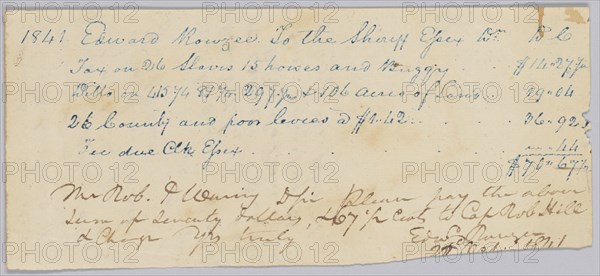 1841 Edward Rowzee To the Sheriff Essex Dr. D C
Tax on 26 Slaves 15 horses and Buggy $14-27½
Ditto on 415¼ 297½ & 106 acres of Land 19-04
26 County and poor levies @ $1.42 36-92
Fee due Clk Essex 44
$70-67½
Mr Rob. P Waring D Sir please pay the above
Sum of Seventy dollars, & 67½ Cents to Cap Rob Hill
& Charge Yrs truly Edwd Rowzee
1841